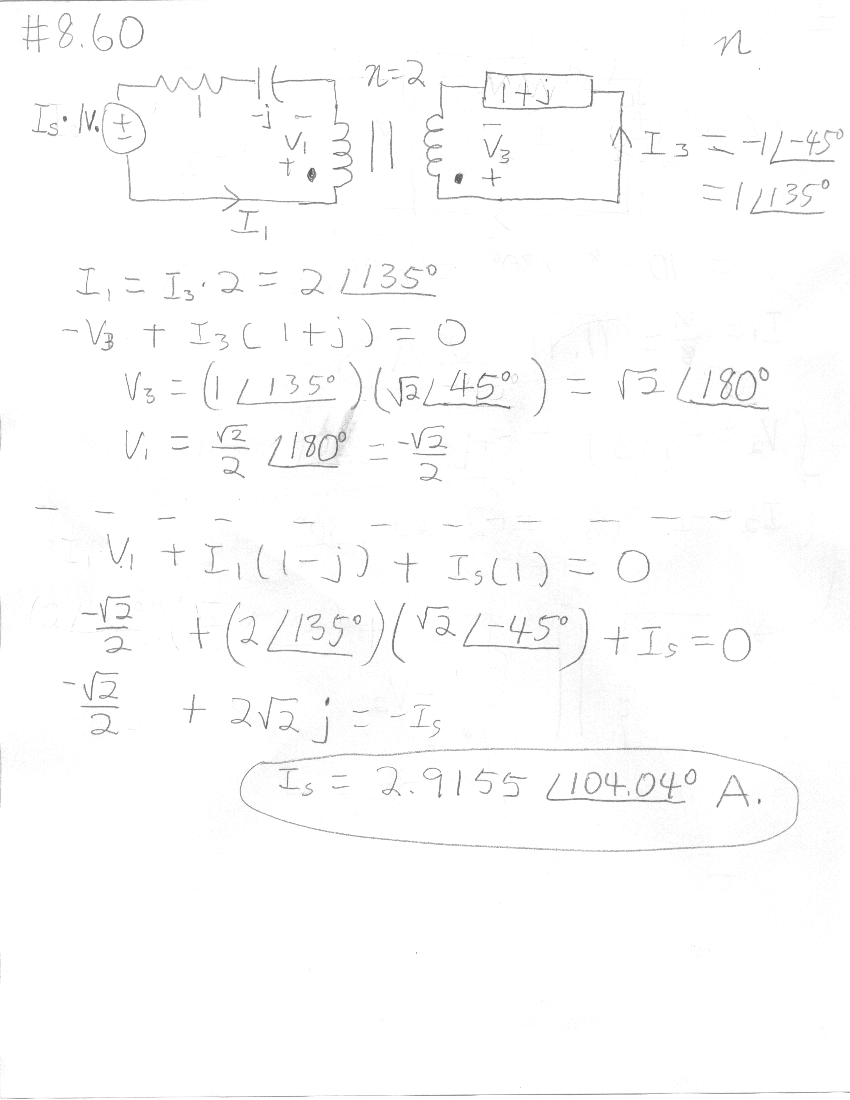 #8.60
n
n=2
1+j
1
-j
Is· 1V.
±
V₁
- +
V₃
- +
I₁
I₃ = -1∠-45°
= 1∠135°
I₁ = I₃·2 = 2∠135°
-V₃ + I₃(1+j) = 0
V₃ = (1∠135°)(√2∠45°) = √2∠180°
V₁ = √2/2 ∠180° = -√2/2
V₁ + I₁(1-j) + Is(1) = 0
-√2/2 + (2∠135°)(√2∠-45°) + Is = 0
-√2/2 + 2√2 j = -Is
Is = 2.9155 ∠104.04° A.